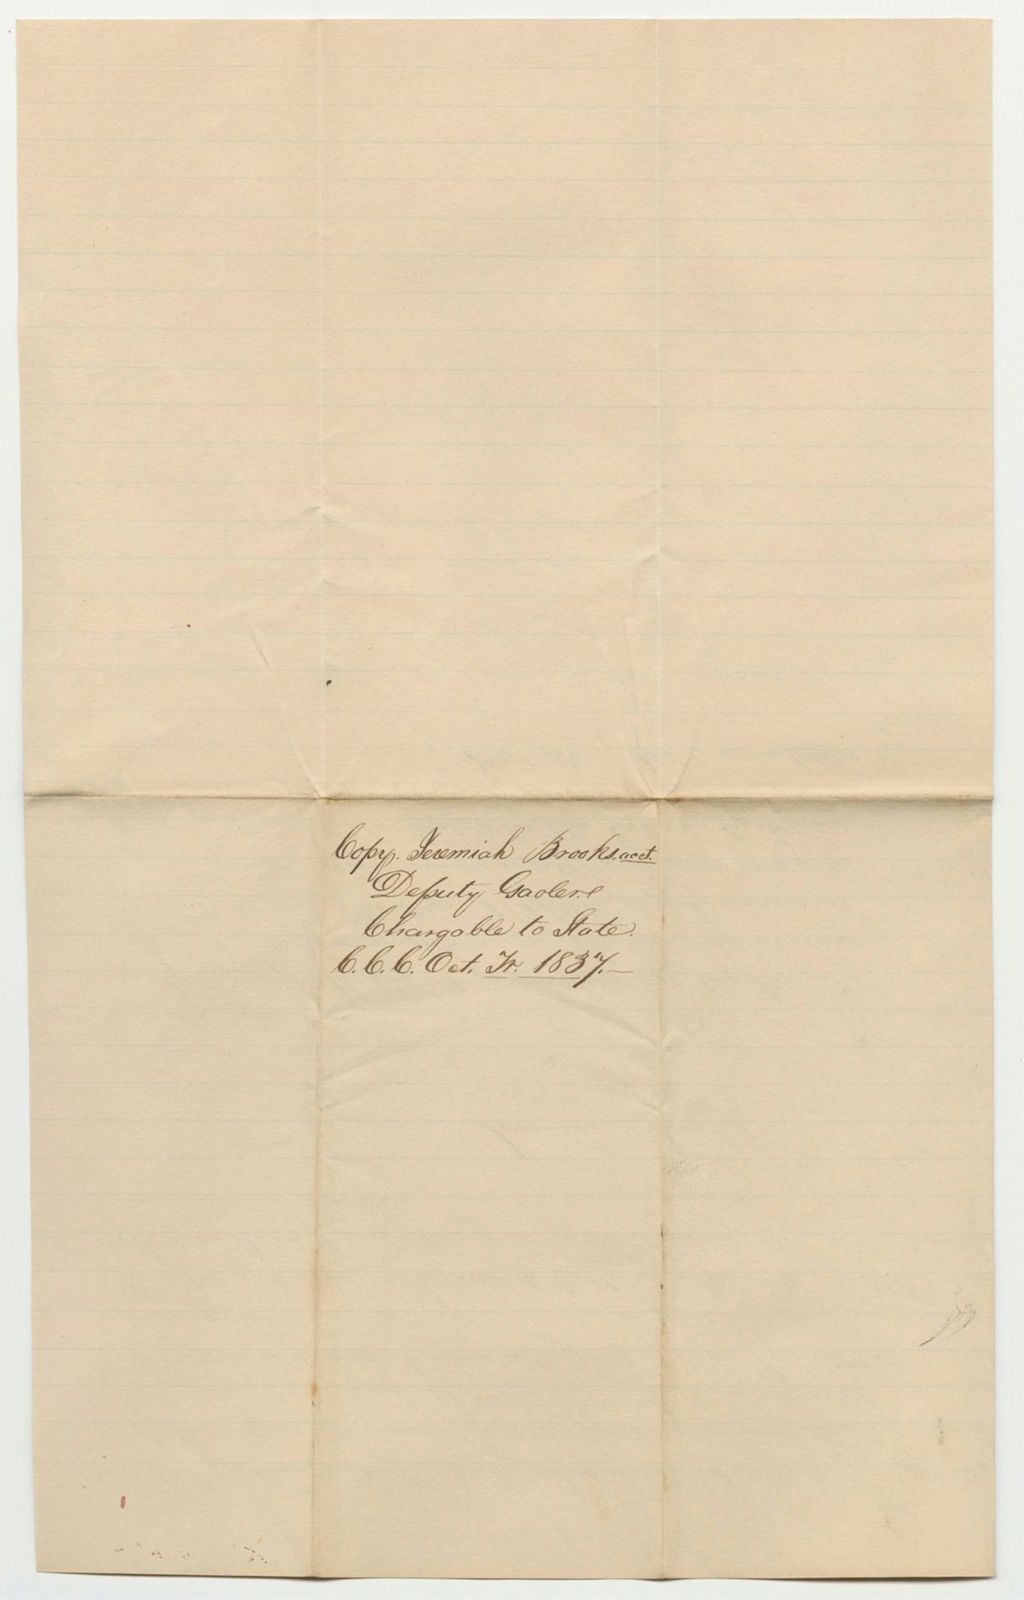 Copy. Jeremiah Brooks acct.
Deputy Gaoler
Chargable to State.
C.C.C. Oct. Tr. 1837.